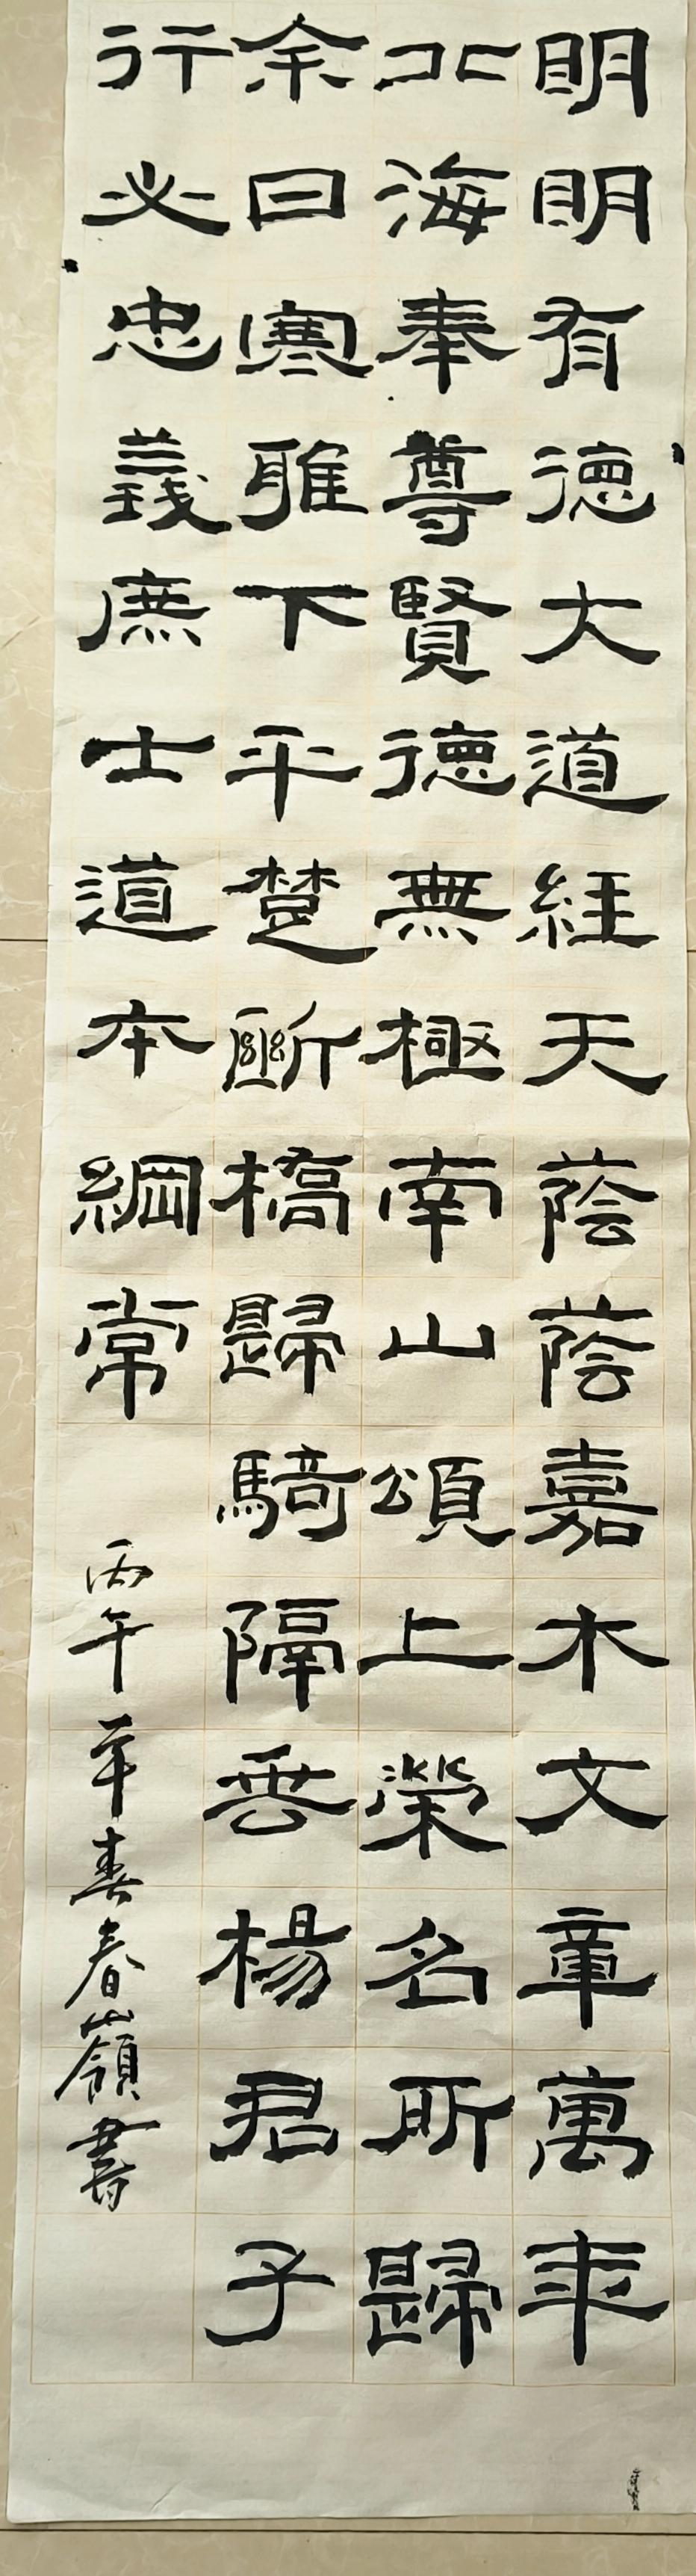 明明有德大道經天蔭蔭嘉木文章萬年
北海奉尊賢德無極南山頌上榮名所歸
余曰寒雅下平楚斷橋歸騎隔垂楊君子
行必忠義廉士道本綱常
丙午年春春嶺書